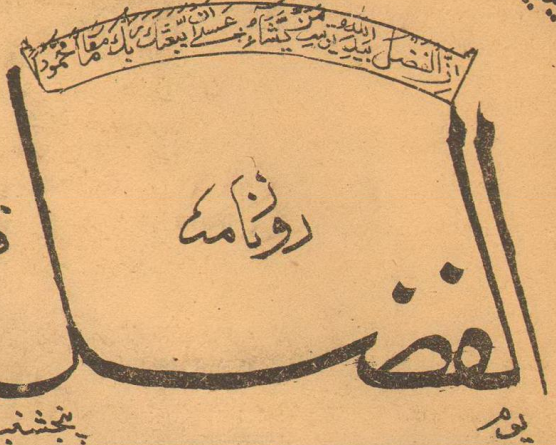 ان الفضل بيد الله يوتيه من يشاء عسى ان يبعثك ربك مقاما محمودا
روزنامہ
الفضل
یوم پنجشنبہ